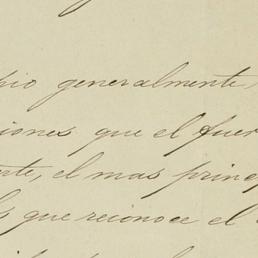 pio generalmente,
ciones que el fuer
arte, el mas princip
los que reconoce el